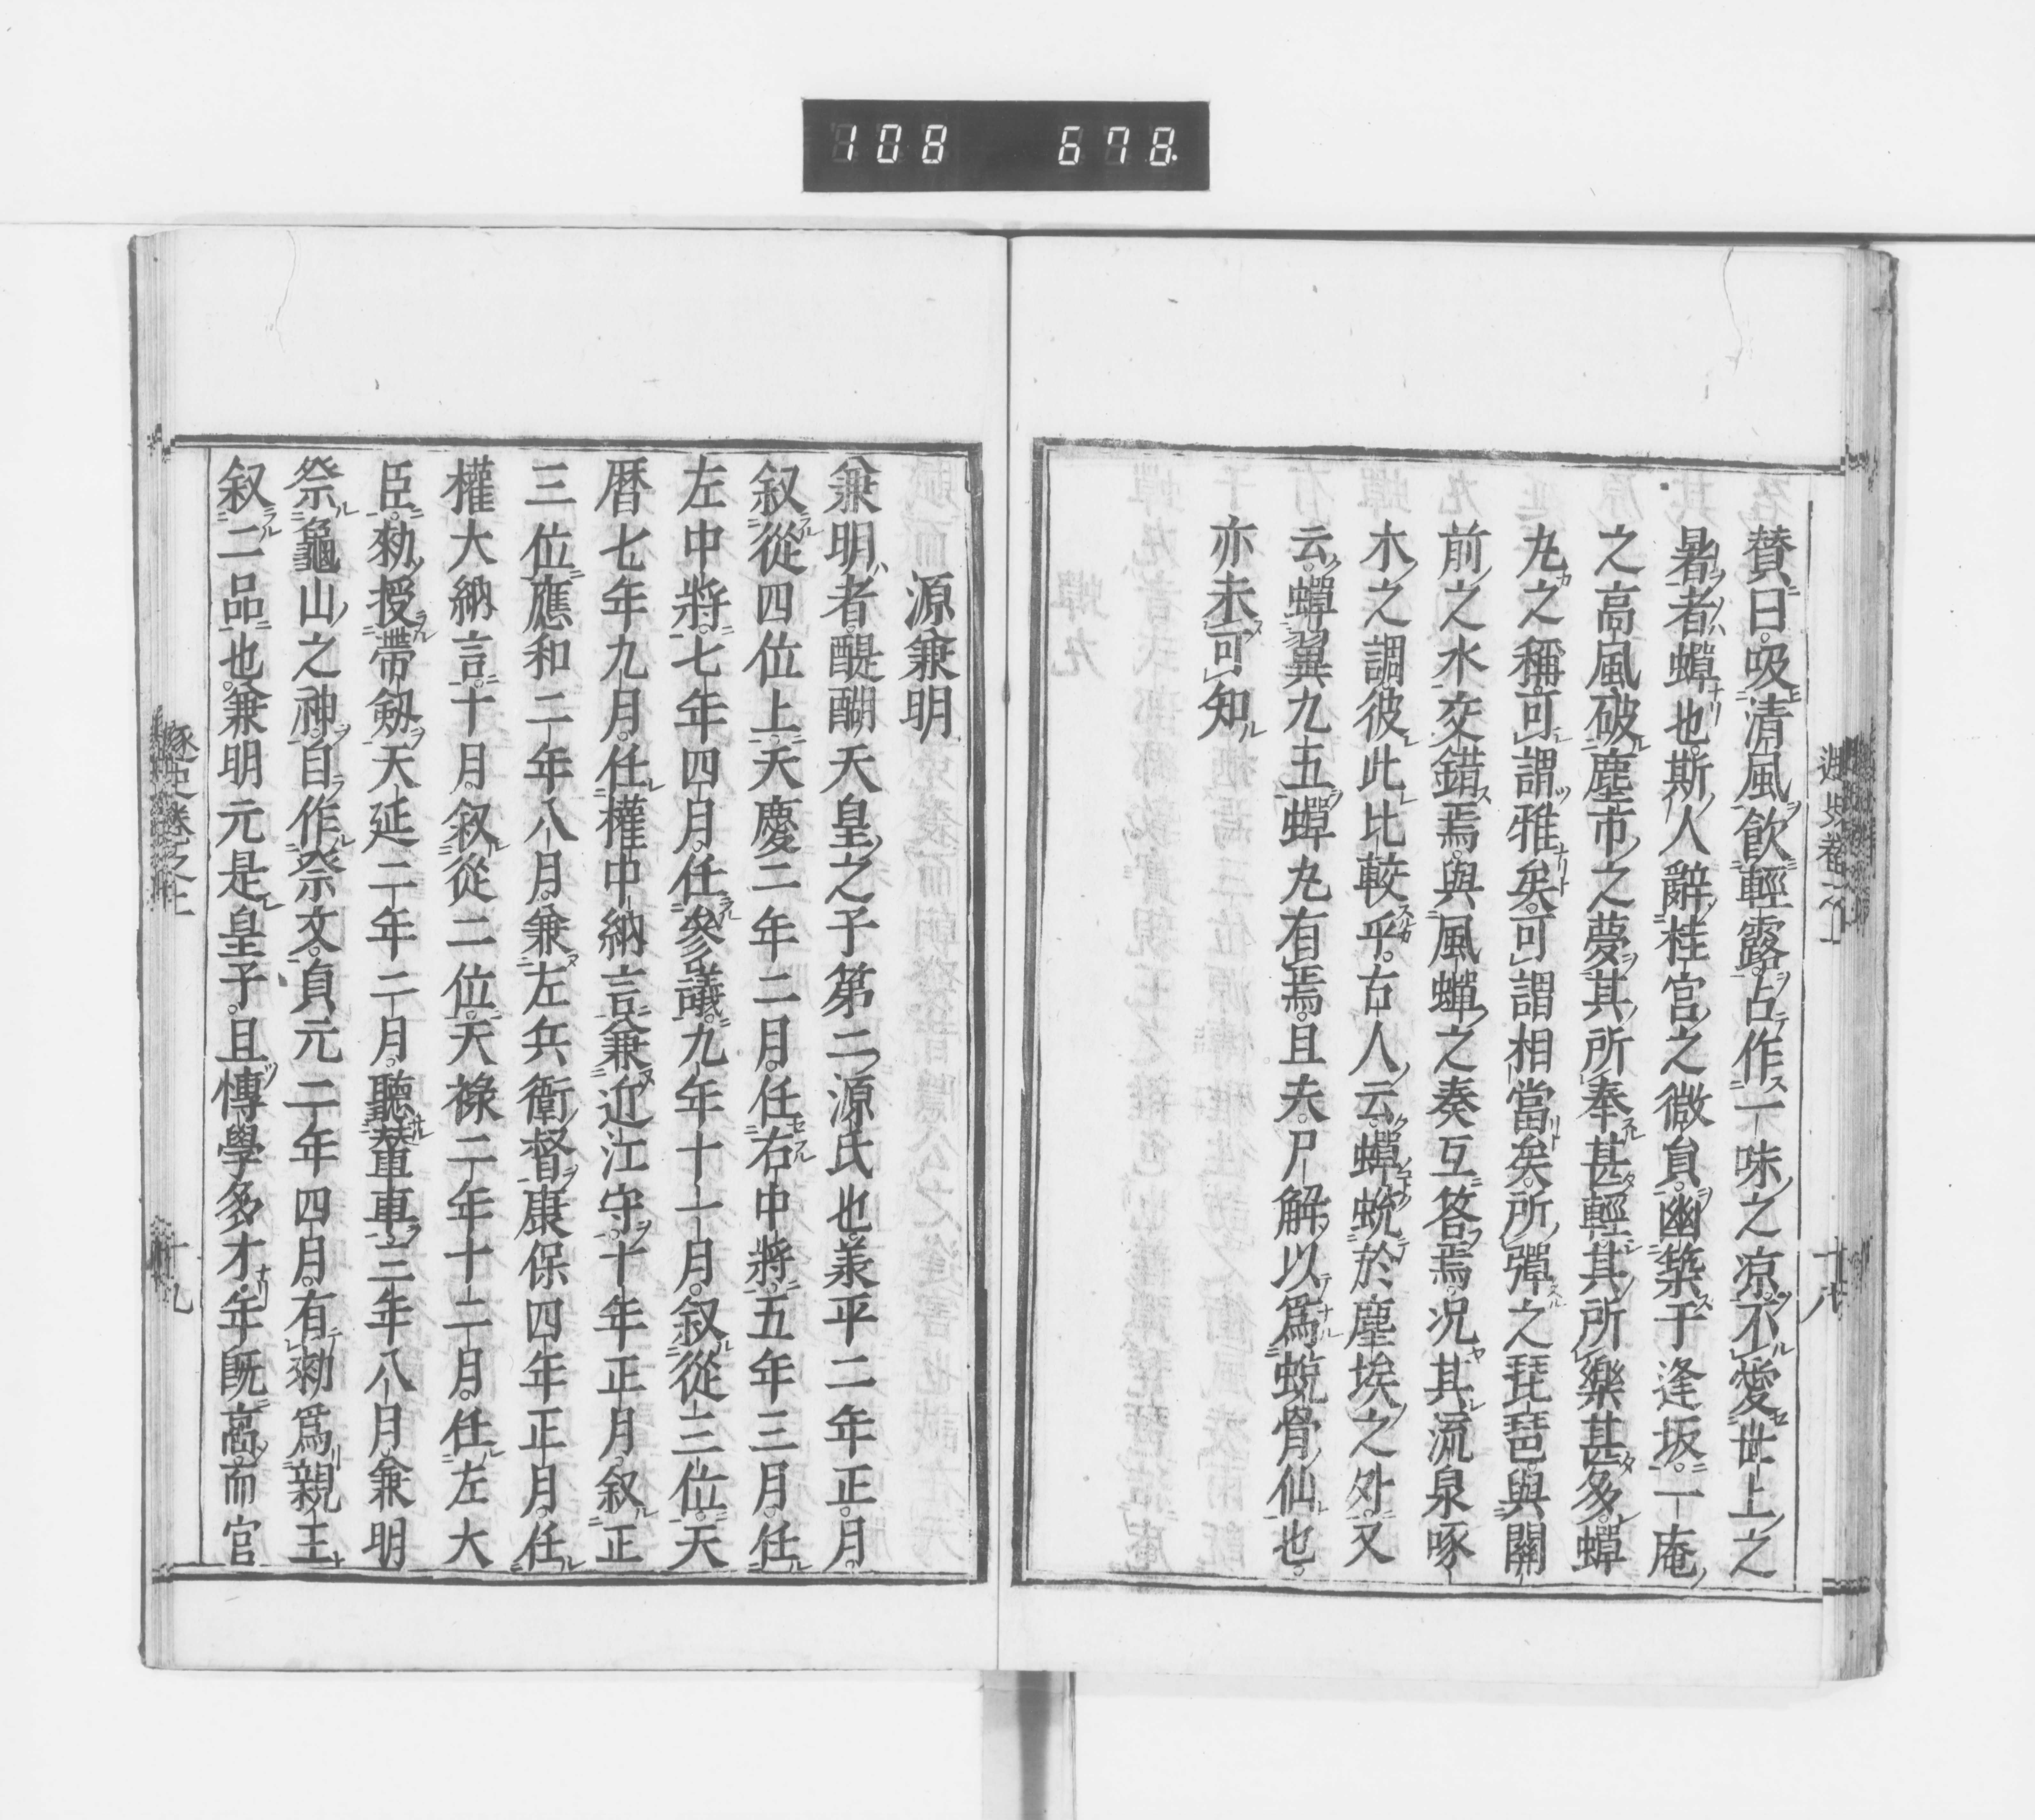 108 678
賛曰吸清風飲輕露占作一味之凉不愛世上之
暑者蟬也斯人辭桂宮之微負幽築于逢坂一庵
之高風破塵市之夢其所奉甚輕其所樂甚多蟬
丸之稱可謂雅矣可謂相當矣所彈之琵琶與關
前之水交錯焉與風蟬之奏互答焉况其流泉啄
木之調彼此比較乎古人云蟬蛻於塵埃之外又
云蟬翼九五蟬丸有焉且夫尸解以爲蛻骨仙也
亦未可知
源兼明
兼明者醍醐天皇之子第二源氏也羕平二年正月
叙從四位上天慶二年二月任右中將五年三月任
左中將七年四月任參議九年十一月叙從三位天
暦七年九月任權中納言兼近江守十年正月叙正
三位應和二年八月兼左兵衛督康保四年正月任
權大納言十月叙從二位天祿二年十二月任左大
臣勑授帶劔天延二年二月聽輦車三年八月兼明
祭龜山之神自作祭文貞元二年四月有勑爲親王
叙二品也兼明元是皇子且博學多才年既高而官